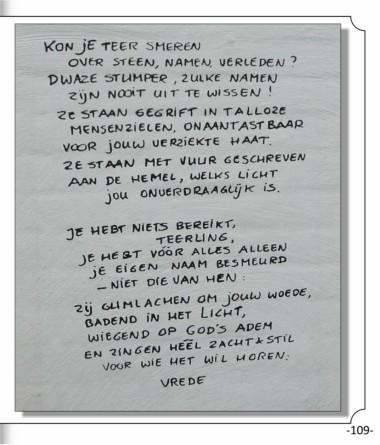 KON JE TEER SMEREN
OVER STEEN, NAMEN, VERLEDEN?
DWAZE STUMPER, ZULKE NAMEN
ZIJN NOOIT UIT TE WISSEN!
ZE STAAN GEGRIFT IN TALLOZE
MENSENZIELEN, ONAANTASTBAAR
VOOR JOUW VERZIEKTE HAAT.
ZE STAAN MET VUUR GESCHREVEN
AAN DE HEMEL, WELKS LICHT
JOU ONVERDRAAGLIJK IS.
JE HEBT NIETS BEREIKT,
TEERLING,
JE HEBT VÓÓR ALLES ALLEEN
JE EIGEN NAAM BESMEURD
– NIET DIE VAN HEN:
ZIJ GLIMLACHEN OM JOUW WOEDE,
BADEND IN HET LICHT,
WIEGEND OP GOD'S ADEM
EN ZINGEN HEÉL ZACHT & STIL
VOOR WIE HET WIL HOREN:
VREDE
-109-